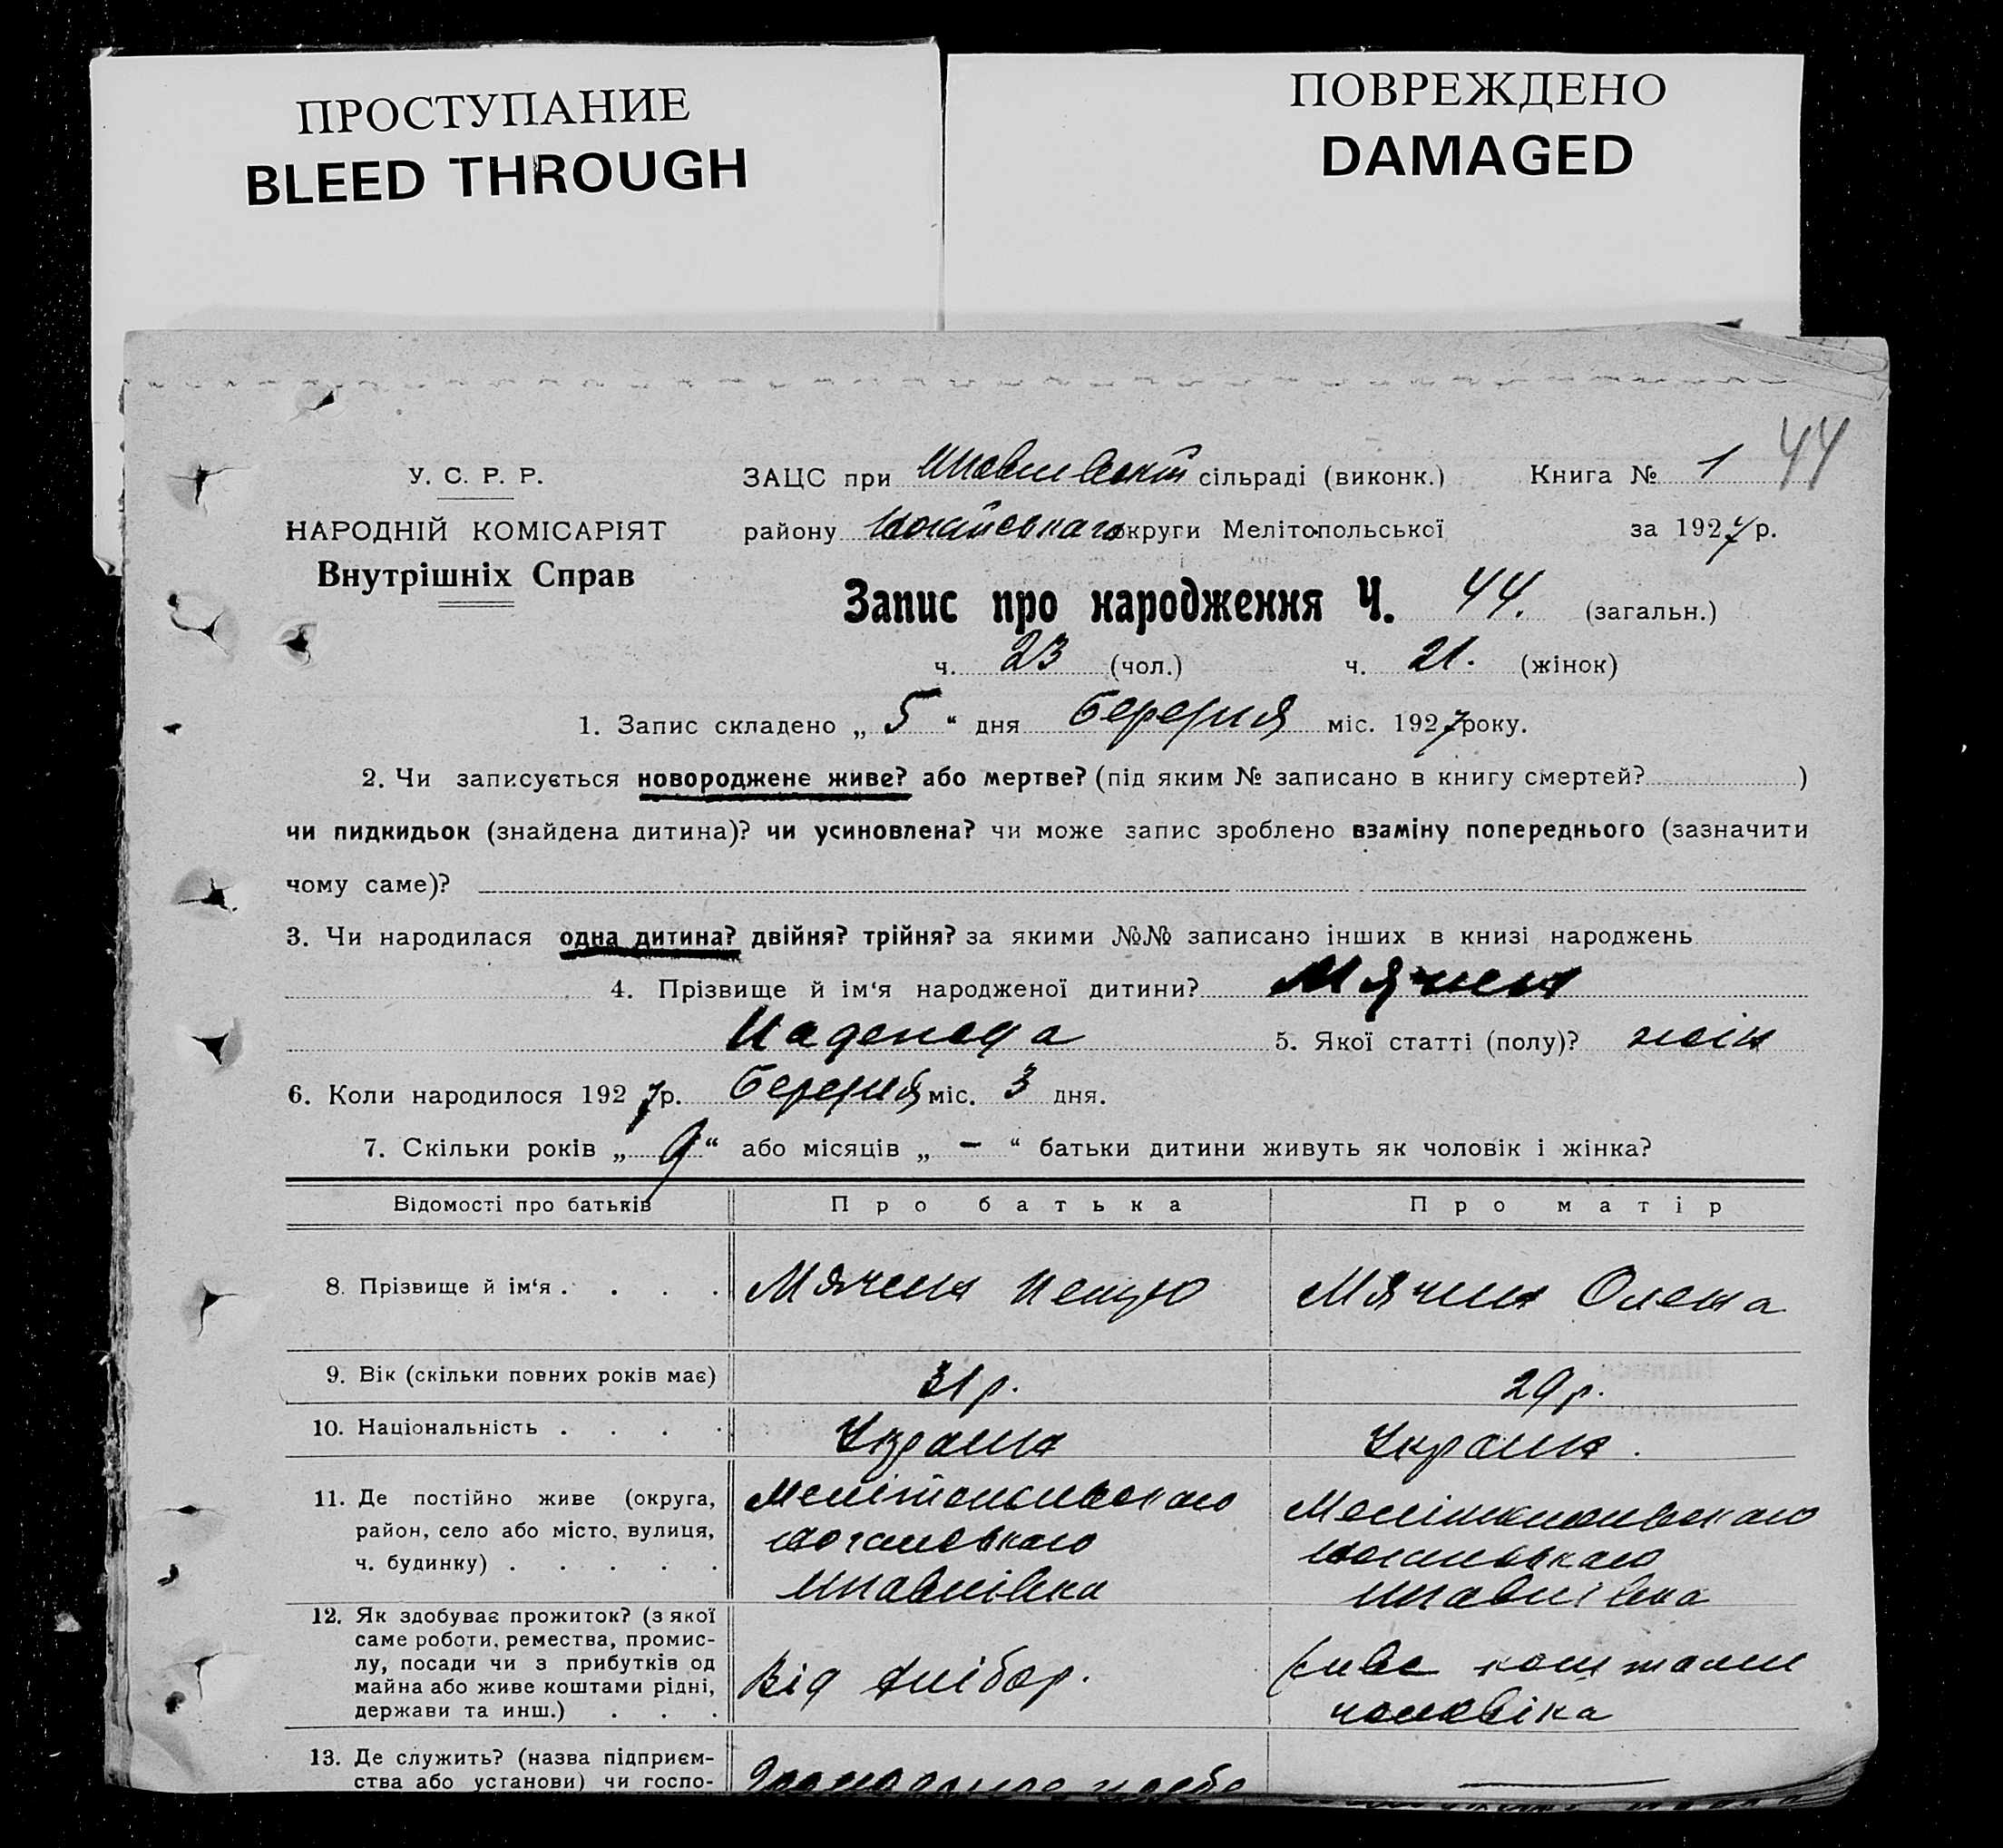 ПРОСТУПАНИЕ
BLEED THROUGH
ПОВРЕЖДЕНО
DAMAGED
44
У. С. Р. Р.
НАРОДНІЙ КОМІСАРІЯТ
Внутрішніх Справ
ЗАЦС при сільраді (виконк.) Книга № 1
району округи Мелітопольської за 1927 р.
Запис про народження Ч. 44. (загальн.)
ч. 23 (чол.) ч. 21. (жінок)
1. Запис складено „ 5 “ дня березня міс. 1927 року.
2. Чи записується новороджене живе? або мертве? (під яким № записано в книгу смертей? )
чи пидкидьок (знайдена дитина)? чи усиновлена? чи може запис зроблено взаміну попереднього (зазначити
чому саме)?
3. Чи народилася одна дитина? двійня? трійня? за якими №№ записано інших в книзі народжень
4. Прізвище й ім‘я народженої дитини? Мячин
Надежда 5. Якої статті (полу)? жін
6. Коли народилося 1927 р. березня міс. 3 дня.
7. Скільки років „ 9 “ або місяців „ — “ батьки дитини живуть як чоловік і жінка?
Відомості про батьків Про батька Про матір
8. Прізвище й ім‘я . . . . Мячин Мячин Олена
9. Вік (скільки повних років має) 31 р. 29 р.
10. Національність . . . . Україн Україн.
11. Де постійно живе (округа,
район, село або місто, вулиця,
ч. будинку) . . . . .
12. Як здобуває прожиток? (з якої
саме роботи, ремества, промис-
лу, посади чи з прибутків од
майна або живе коштами рідні,
держави та инш.) . . .
Від хлібор.
живе коштами
чоловіка
13. Де служить? (назва підприєм-
ства або установи) чи госпо-